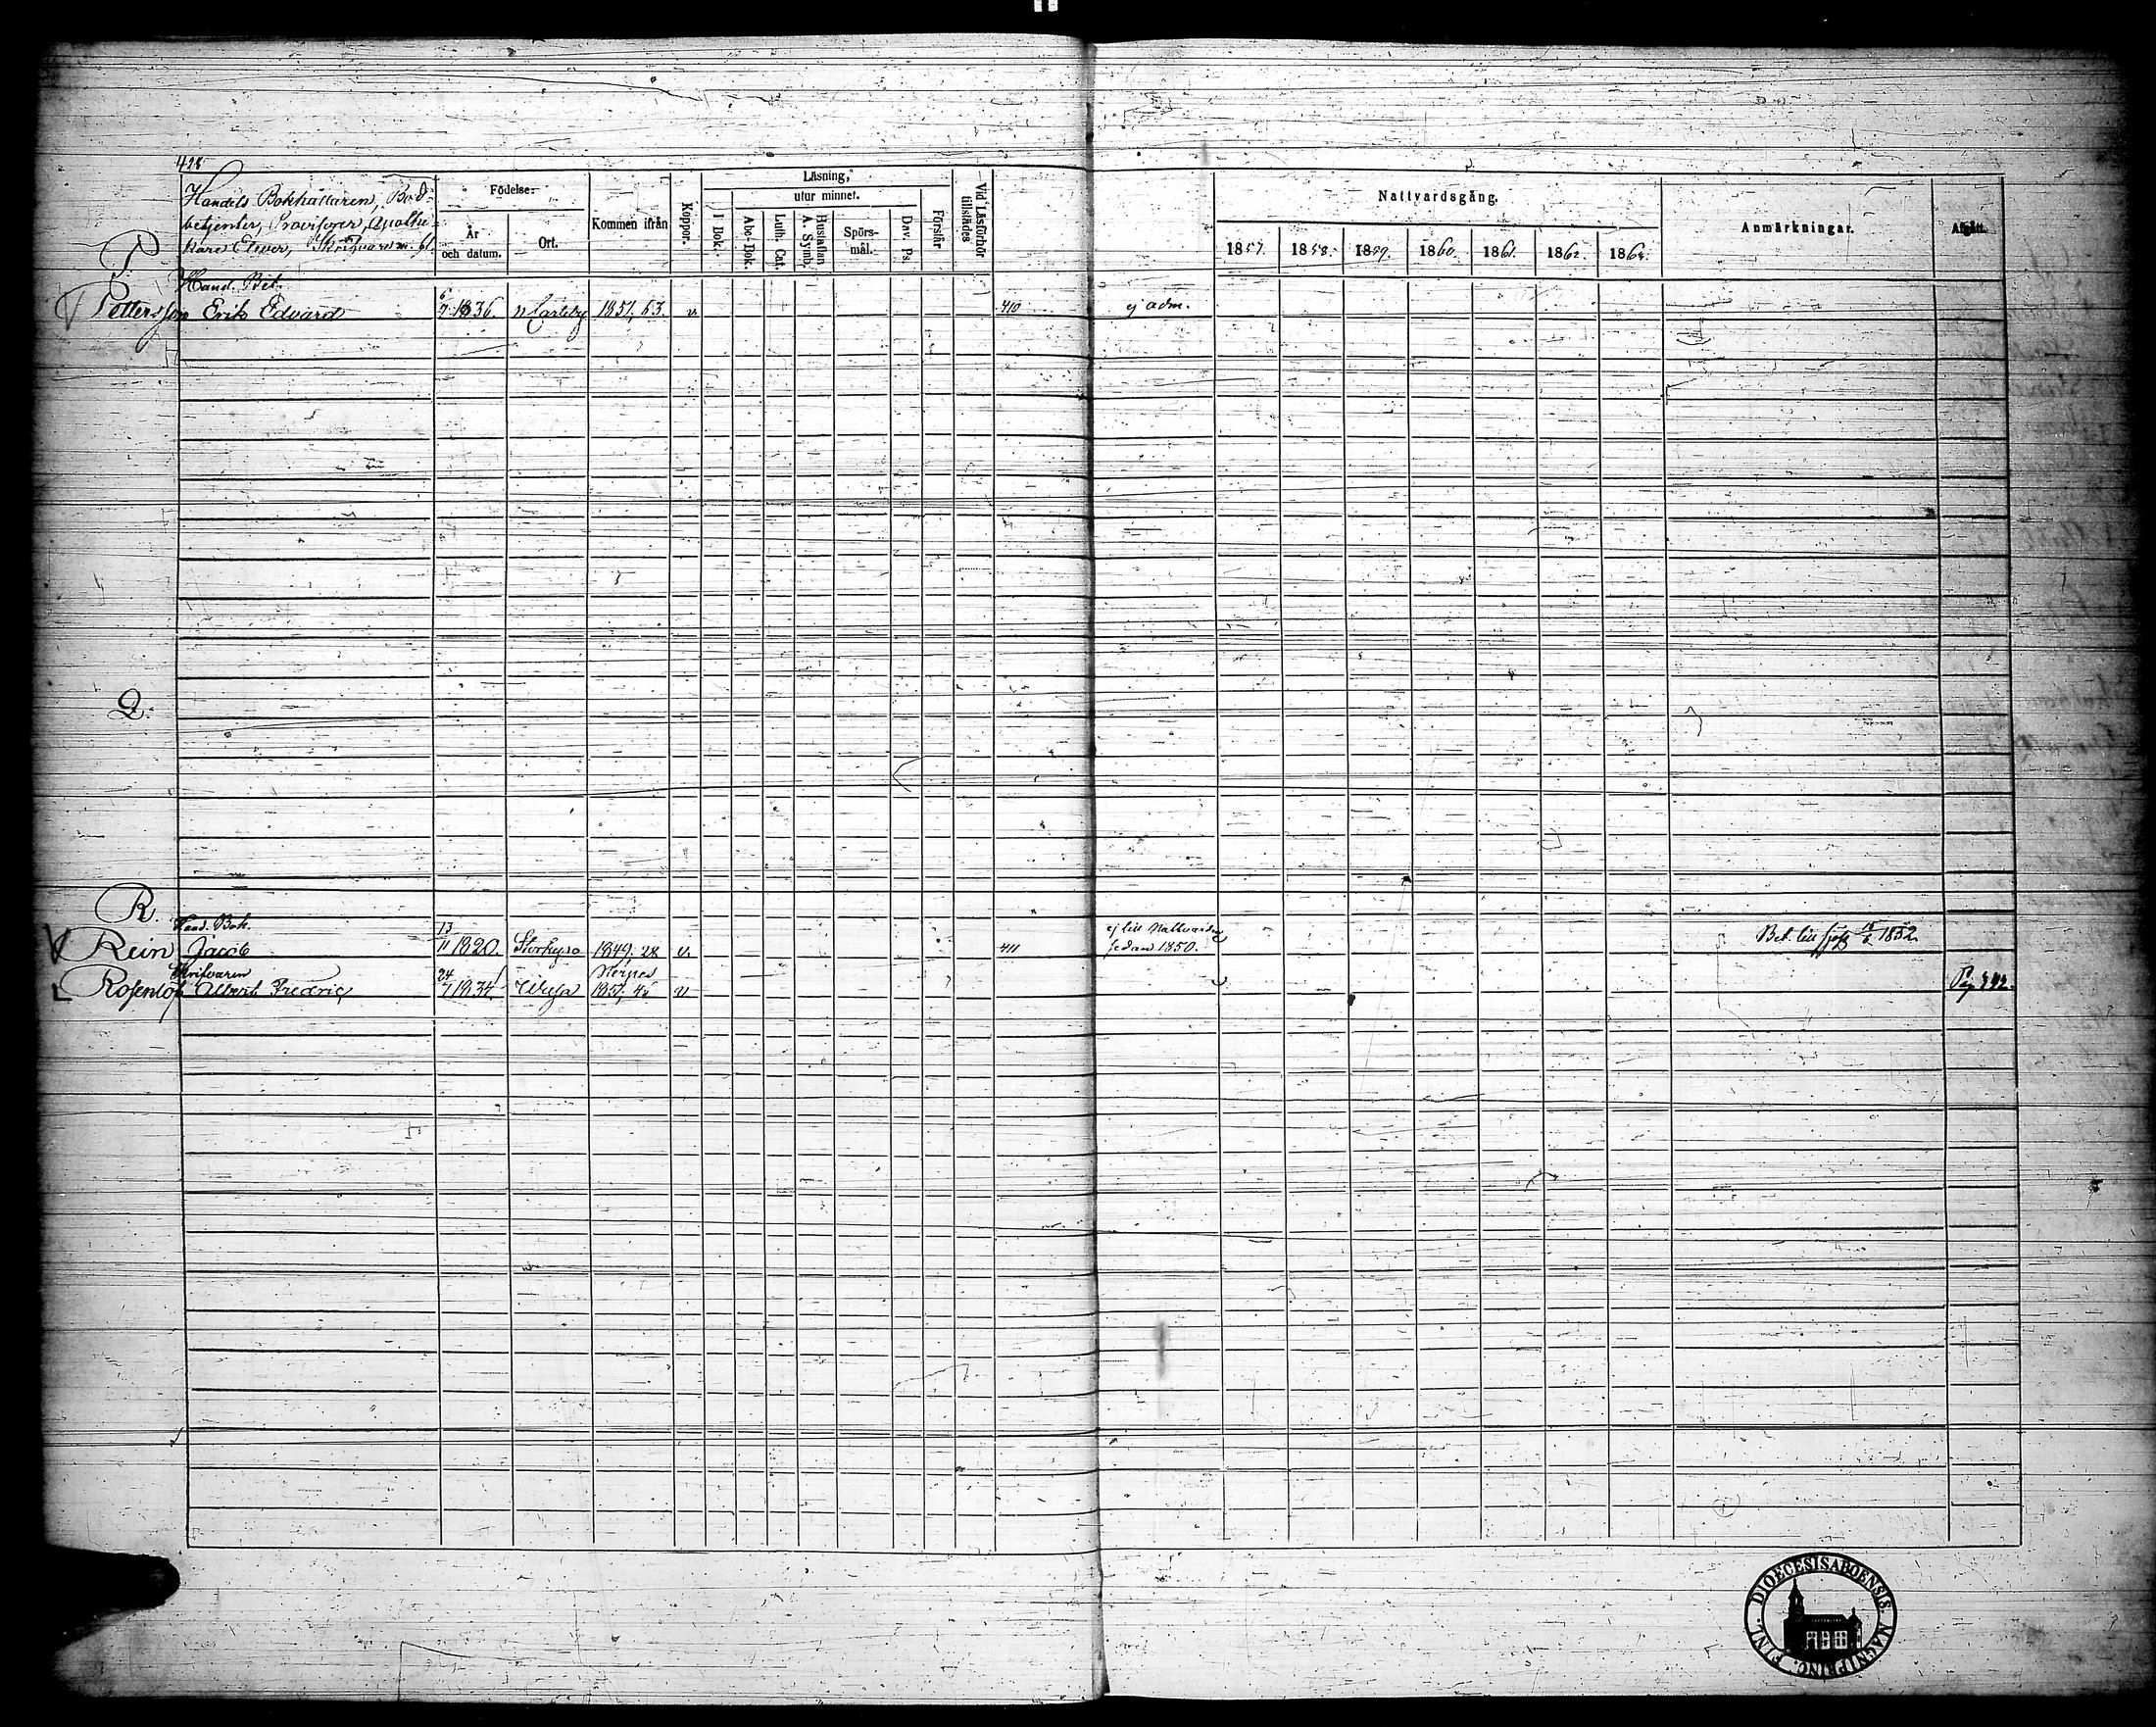 428
Handels Bokhållaren, Bod-
betjenter, Provisorer, Apothe
kare Elever, Skrifvare m. fl.
Födelse:
År
och datum.
Ort.
Kommen ifrån
Koppor.
Läsning,
utur minnet.
I Bok.
Abc-Dok.
Luth. Cat.
Hustaflan
A. Symb.
Spörs-
mål.
Dav. Ps.
Förstår
Vid Läsförhör
tillstädes
Nattvardsgång.
1857. 1858. 1859. 1860. 1861. 1862. 1863.
Anmärkningar.
Afgått.
P.
Hand. Bet.
Pettersson Erik Edvard 6/7 1836. N Carleby 1857, 63. v 410 ej adm.
Q.
R.
Hand. Bok. ej till Nattvarden
Rein Jacob 13/11 1820. Storkyro 1849, 28 v. 411 sedan 1850. Bet. till sjöss 1852
Skrifvaren
Rosenlöf Albert Fredric 24/7 1834. 1857, 45 v Pag 442.
DIOECESIS ABOENSIS MAGNI PRINC. FINL.